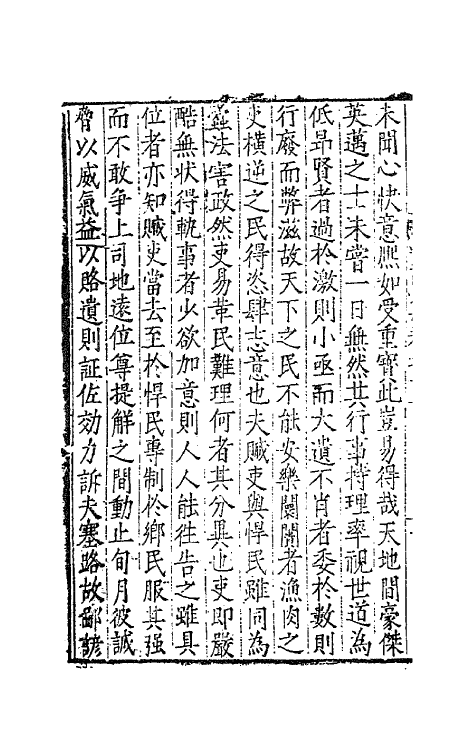 未聞心快意熈如受重寳此豈易得哉天地間豪傑
英邁之士未嘗一日無然其行事持理率視世道為
低昂賢者過於激則小亟而大遺不肖者委於數則
行廢而弊滋故天下之民不能安樂闤闠者漁肉之
吏横逆之民得恣肆志意也夫贓吏與悍民雖同為
法害政然吏易革民難理何者其分異也吏即嚴
酷無状得執事者少欲加意則人人能徃告之雖具
位者亦知贓吏當去至於悍民專制於鄉民服其强
而不敢争上司地遠位尊提解之間動止旬月彼誠
脅以威氣益以賂遺則証佐効力訴夫塞路故鄙諺